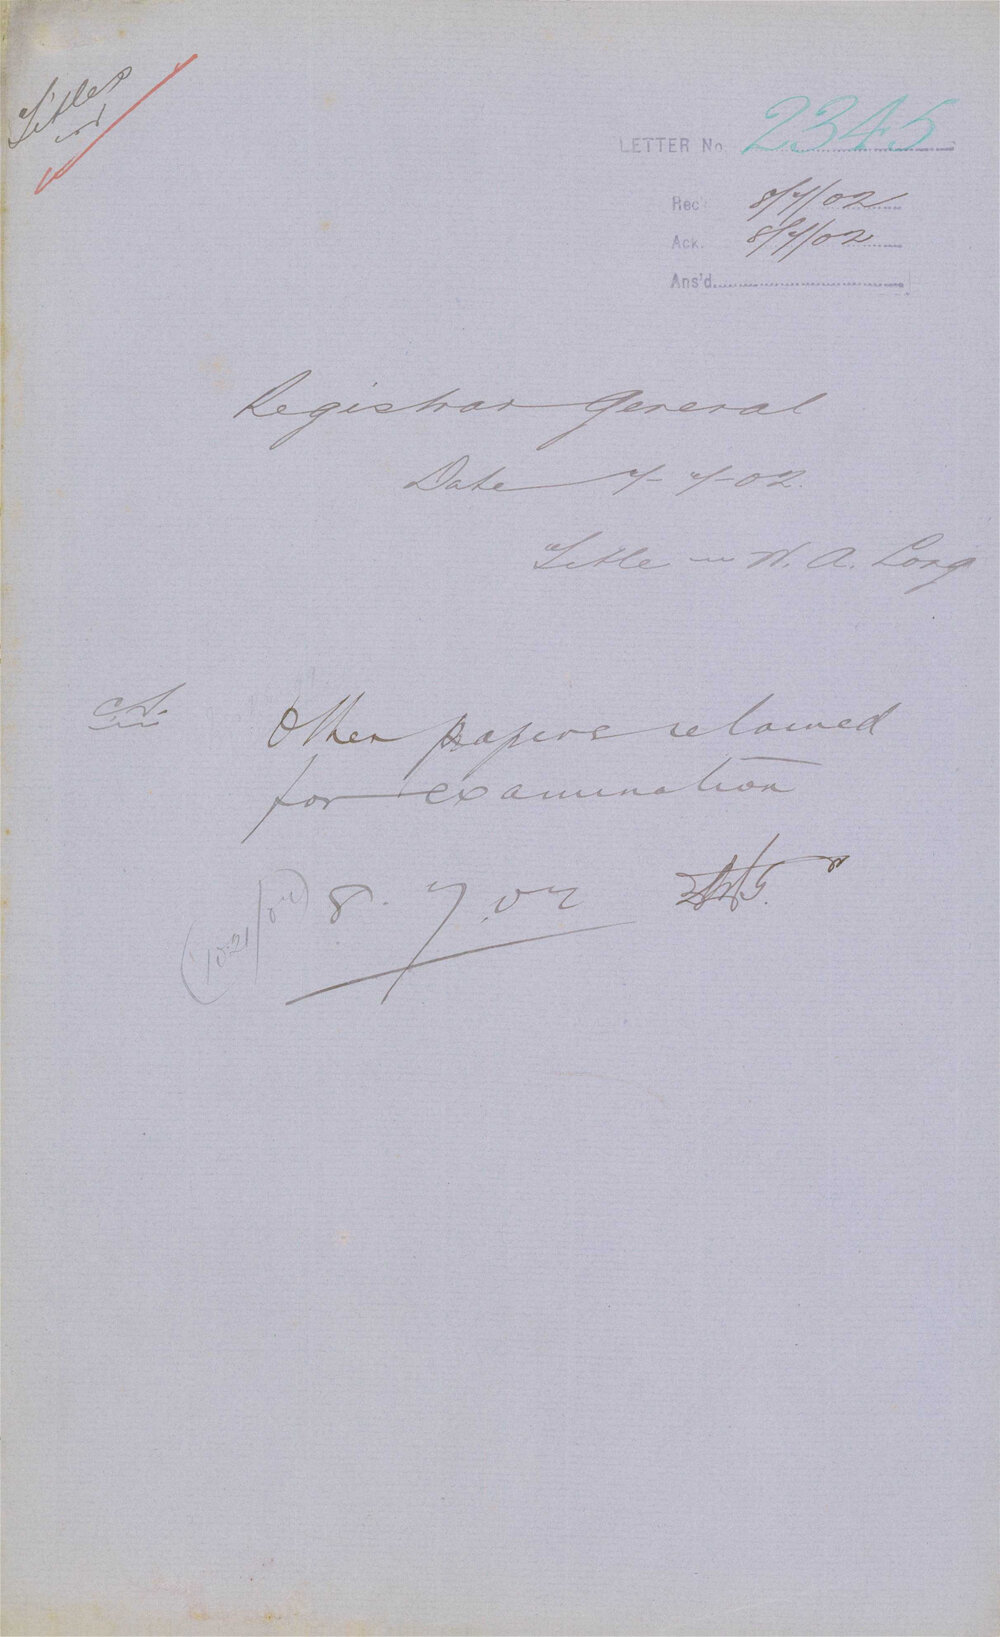 Titles
LETTER No. 2345
Rec'd 8/7/02
Ack. 8/7/02
Ans'd
Registrar General
Date 7-7-02.
Title W. A. Long
Other papers retained
for examination
8.7.02